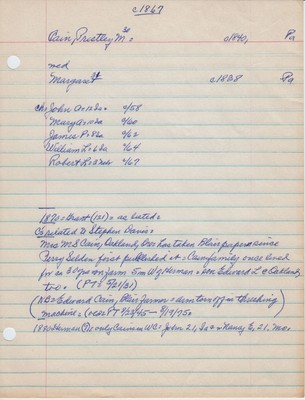 c1867
Cain, Prestley M: c1840, Pa
med
Margaret c1838 Pa
ch: John A: 12 Ia: c/58
Mary c/60
James P: 8 Ia c/62
William L: 6 Ia c/64
Robert c/67
1870: Grant (121): as listed:
related to Stephen Davis:
Mrs M.S. Cain, Oakland, has taken Blair paper since
Perry Selden first published it: Cain family once lived
for 30 yrs on farm 5 m W of Herman: son Edward L @ Oakland,
too. (PT: 2/21/31)
(NB: Edward Cain, Blair farmer: arm torn off in threshing
machine: PT 9/20/45 - 9/19/75:
1880 Herman Pct only Cain in WC: John 21, Ia & Nancy E, 21, Mo.